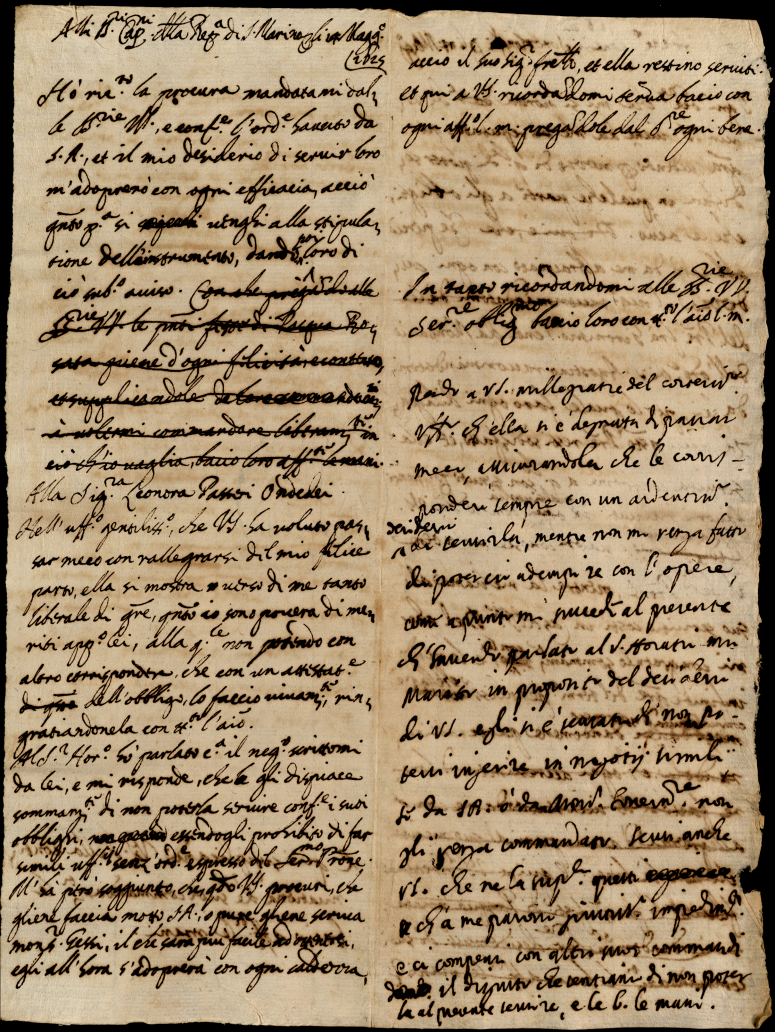 Alli Sri Capni della Repca di S. Marino li 22 Maggo
1625
Hò ricto la procura mandatami dal,
le SSrie VV, e confe l'orde havuto da
S. A., et il mio desiderio di servir loro
m'adoprerò con ogni efficacia, acciò
qnto pa si venghi alla stipula,
tione dell'instrumento, dando poi loro di
ciò subo aviso. Con che pregãdo alle
SSrie VV le pnti feste di Pasqua Ro,
sata piene d'ogni filicità, e contento,
et supplicandole
à volermi commandare liberamte in
ciò ch'io vaglia, bacio loro affte le mani.
Alla Sigra Leonora Passeri Ondedei.
Nell'uffo gentilisso, che VS. ha voluto pas,
sar meco con rallegrarsi del mio filice
parto, ella si mostra verso di me tanto
liberale di gre, qnto io sono povera di me,
riti appo lei, alla qle non potendo con
altro corrispondere, che con un attestate
dell'obbligo, lo faccio vivamte, rin,
gratiandonela con tto l'aio.
Al Sr Horo hò parlato ca il nego scrittomi
da lei, e mi risponde, che gli dispiace
sommamte di non poterla servire confe i suoi
obblighi, essendogli prohibito di far
simili uffi senz'orde espresso del Sermo Prone.
M'hà però soggiunto, che qdo VS. procuri, che
gliene faccia motto S.A., o pure gliene scriva
monsr Gessi, il che sarà piu facile ad ottenersi,
egli all'hora s'adoprerà con ogni caldezza,
acciò il suo sigr frello, et ella restino serviti.
et qui a VS. ricordãdomi serva bacio con
ogni affo l. m. pregãdole dal Sre ogni bene.
In tanto ricordandomi alle SSrie VV.
Serre obligmo bacio loro con tto l'aio l. m.
Rendo a VS. mille gratie del
uffo ch'ella si è degnata di passar
meco, assicurandola che le corris-
ponderò sempre con un ardentismo
desiderio
di servirla, mentre non mi venga fatto
di poter ciò adempire con l'opere,
come apunto mi succede al presente
ch'havendo parlato al S. Horatio mio
Marito in proposito del desiderio
di VS. egli si è scusato di non po-
tersi ingerire in negotij simili
se da SA: ò da Monsr Governre non
gli venga commandato. Scusi anche
VS. che ne la suplo questi
ch'a me paiono giustissi impedimti
e ci compensi con altri suoi commandi
il disgusto che sentiamo di non poter
la al presente servire, e le b. le mani.